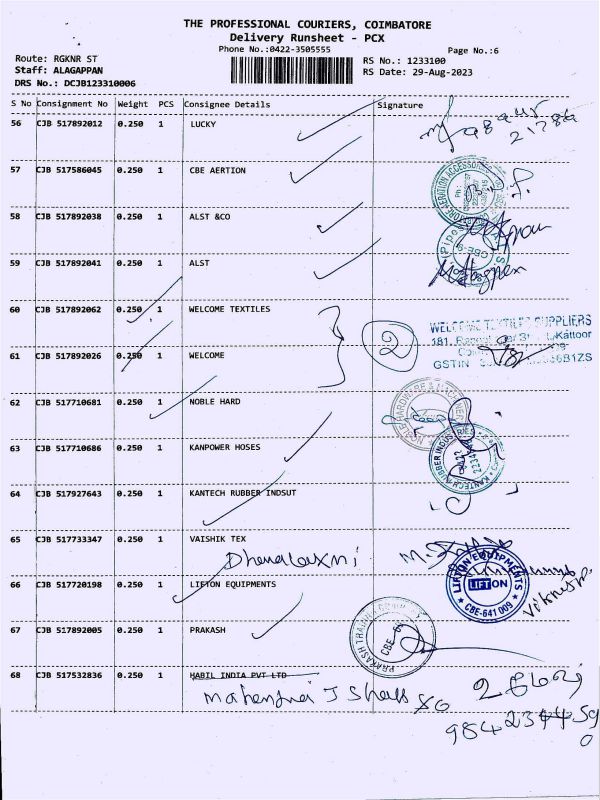 THE PROFESSIONAL COURIERS, COIMBATORE
Delivery Runsheet - PCX
Phone No.:0422-3505555
Page No.:6
Route: RGKNR ST
RS No.: 1233100
Staff: ALAGAPPAN
RS Date: 29-Aug-2023
DRS No.: DCJB123310006
S No Consignment No Weight PCS Consignee Details Signature
56 CJB 517892012 0.250 1 LUCKY
57 CJB 517586045 0.250 1 CBE AERTION
58 CJB 517892038 0.250 1 ALST &CO
59 CJB 517892041 0.250 1 ALST
60 CJB 517892062 0.250 1 WELCOME TEXTILES
WELCOME TEXTILE SUPPLIERS
2
61 CJB 517892026 0.250 1 WELCOME
62 CJB 517710681 0.250 1 NOBLE HARD
63 CJB 517710686 0.250 1 KANPOWER HOSES
KANTECH RUBBER INDUSTRIES
64 CJB 517927643 0.250 1 KANTECH RUBBER INDSUT
65 CJB 517733347 0.250 1 VAISHIK TEX
Dhanalaxmi
66 CJB 517720198 0.250 1 LIFTON EQUIPMENTS
LIFTON EQUIPMENTS
LIFTON
CBE-641 009
67 CJB 517892005 0.250 1 PRAKASH
68 CJB 517532836 0.250 1 HABIL INDIA PVT LTD